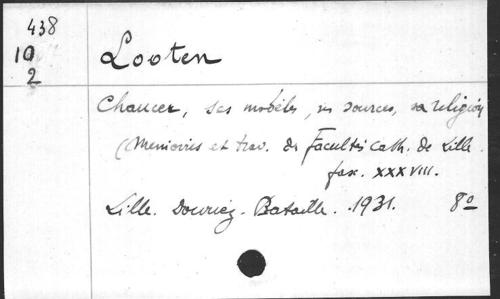 438
10
2
Looten
Chaucer, ses modèles, ses sources, sa religion
(Memoires et trav. des Facultés cath. de Lille.
fasc. XXXVIII.
Lille. Douriez-Bataille. 1931. 8°